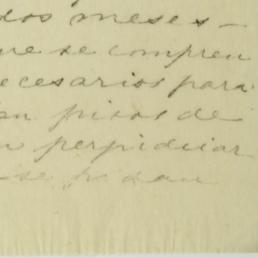 dos meses –
que se compren
necesarios para
pisos de
perjudicar
se